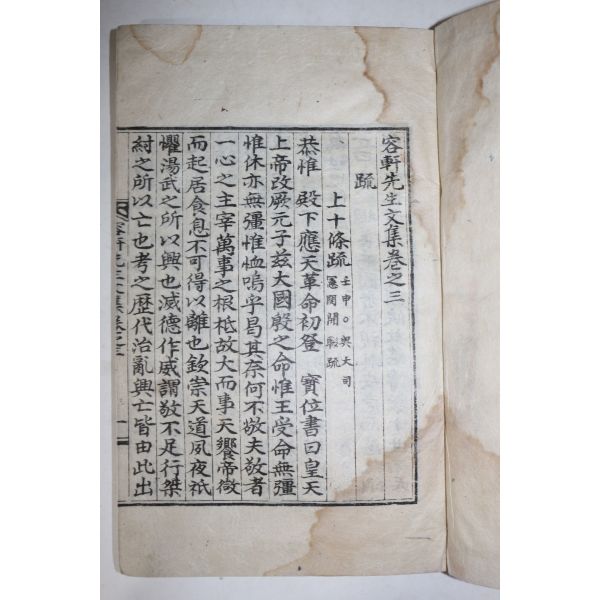 容軒先生文集卷之三
疏
上十條疏 壬申○與大司憲閔開聯疏
恭惟 殿下應天革命初登 寶位書曰皇天
上帝改厥元子玆大國殷之命惟王受命無彊
惟休亦無彊惟恤嗚乎曷其奈何不敬夫敬者
一心之主宰萬事之根柢故大而事天饗帝微
而起居食息不可得以離也欽崇天道夙夜祇
懼湯武之所以興也滅德作威謂敬不足行桀
紂之所以亡也考之歷代治亂興亡皆由此出
容軒先生文集卷之三
一